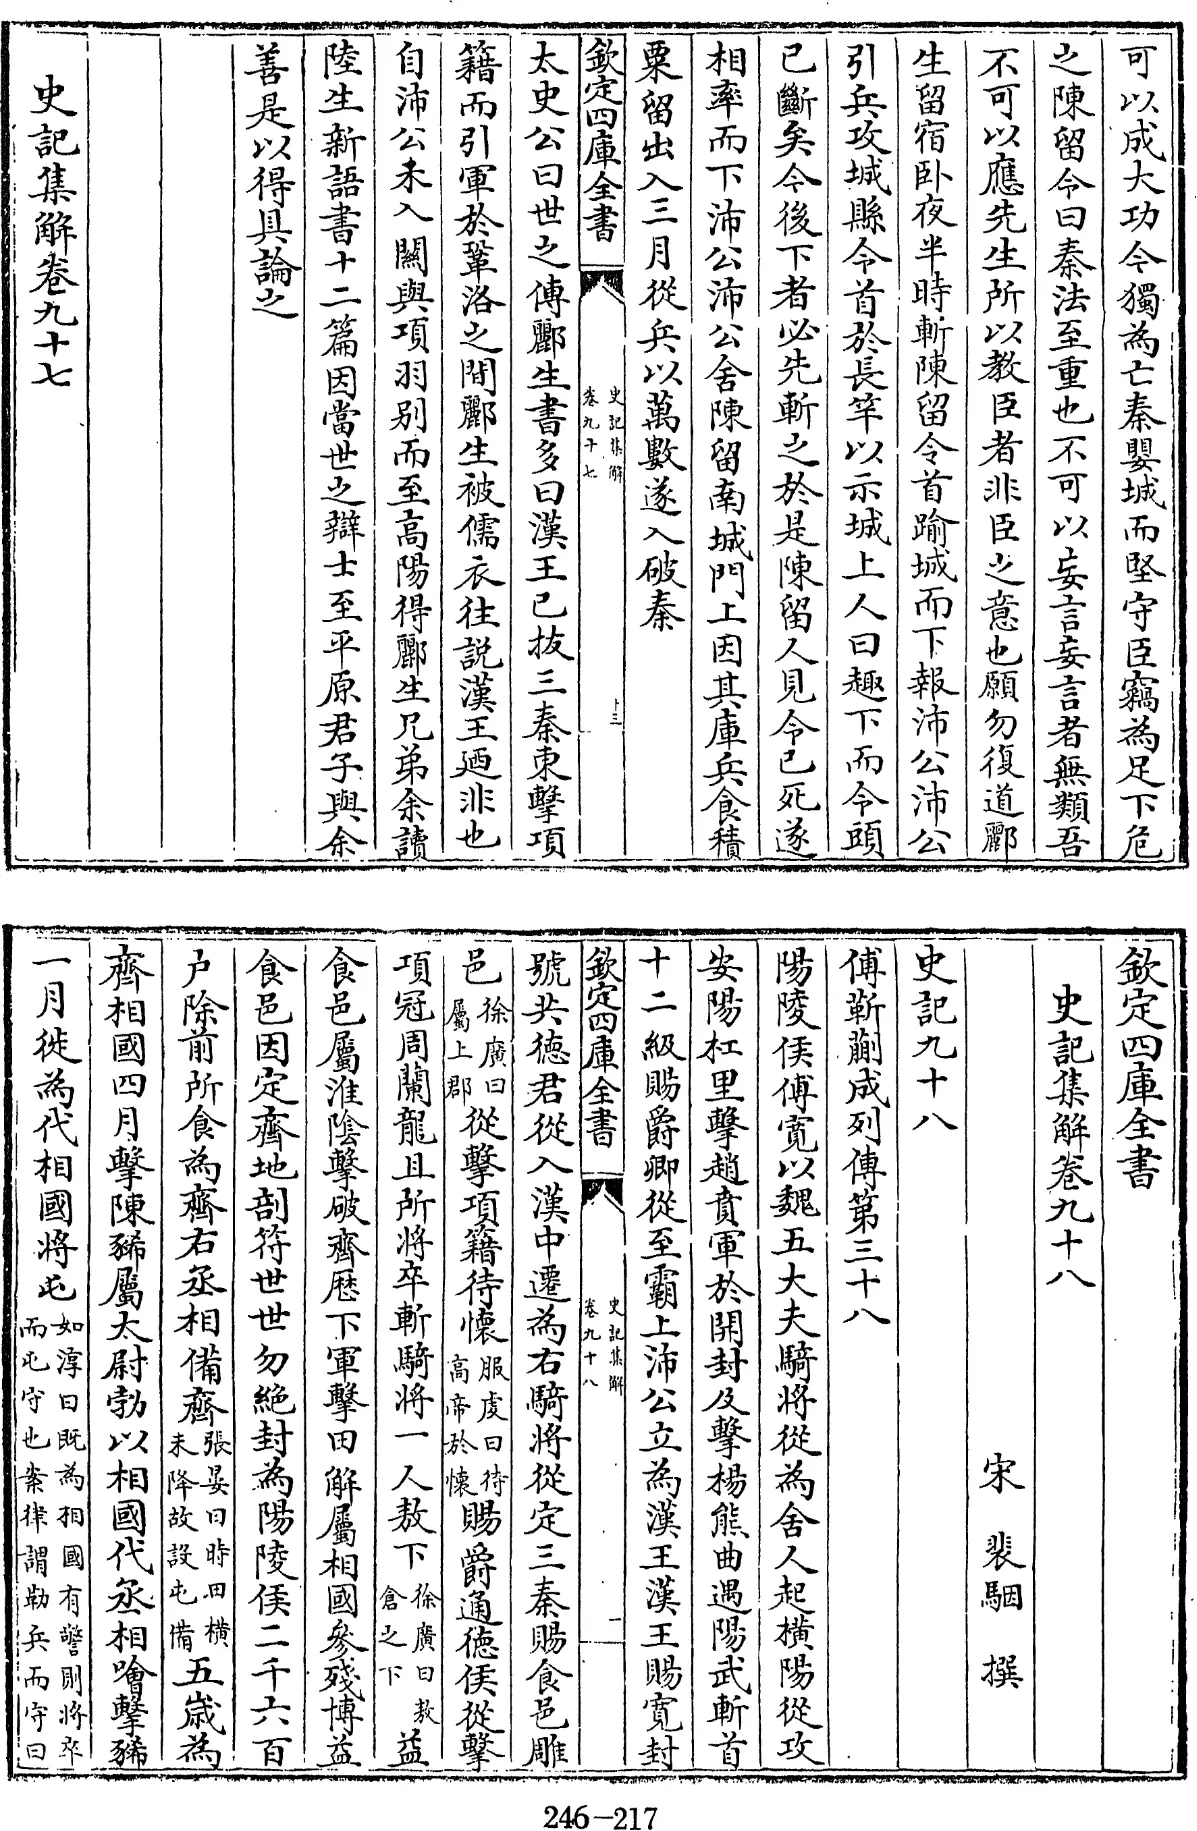 可以成大功今獨為亡秦嬰城而堅守臣竊為足下危
之陳留令曰秦法至重也不可以妄言妄言者無類吾
不可以應先生所以教臣者非臣之意也願勿復道酈
生留宿臥夜半時斬陳留令首踰城而下報沛公沛公
引兵攻城縣令首於長竿以示城上人曰趣下而令頭
已斷矣今後下者必先斬之於是陳留人見令已死遂
相率而下沛公沛公舍陳留南城門上因其庫兵食積
粟留出入三月從兵以萬數遂入破秦
欽定四庫全書
史記集解
卷九十七
十三
太史公曰世之傳酈生書多曰漢王已拔三秦東擊項
籍而引軍於鞏洛之間酈生被儒衣往說漢王廼非也
自沛公未入關與項羽别而至高陽得酈生兄弟余讀
陸生新語書十二篇因當世之辯士至平原君子與余
善是以得具論之
史記集解卷九十七
欽定四庫全書
史記集解卷九十八
宋 裴駰 撰
史記九十八
傅靳蒯成列傳第三十八
陽陵侯傅寛以魏五大夫騎將從為舍人起橫陽從攻
安陽杠里擊趙賁軍於開封及擊楊熊曲遇陽武斬首
十二級賜爵卿從至霸上沛公立為漢王漢王賜寛封
欽定四庫全書
史記集解
卷九十八
一
號共德君從入漢中遷為右騎將從定三秦賜食邑雕
邑徐廣曰屬上郡從擊項籍待懷服虔曰待高帝於懷賜爵通德侯從擊
項冠周蘭龍且所將卒斬騎將一人敖下徐廣曰敖倉之下益
食邑屬淮陰擊破齊歷下軍擊田解屬相國參殘博益
食邑因定齊地剖符世世勿絶封為陽陵侯二千六百
户除前所食為齊右丞相備齊張晏曰時田橫未降故設屯備五歲為
齊相國四月擊陳豨屬太尉勃以相國代丞相噲擊豨
一月徙為代相國將屯如淳曰既為相國有警則將卒而屯守也案律謂勒兵而守曰
246-217